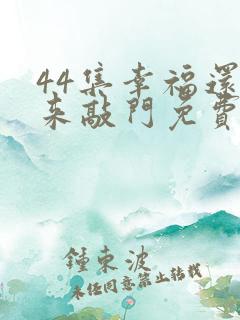 44集幸福還
來敲門免費
鍾東波
未經同意禁止轉載